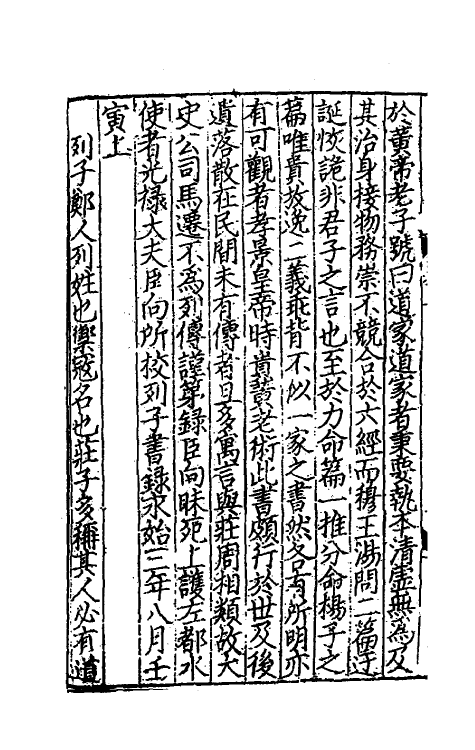 於黃帝老子號曰道家道家者秉要執本清虛無為及
其治身接物務崇不競合於六經而穆王湯問二篇迂
誕恢詭非君子之言也至於力命篇一推分命楊子之
篇唯貴放逸二義乖背不似一家之書然各有所明亦
有可觀者孝景皇帝時貴黃老術此書頗行於世及後
遺落散在民間未有傳者且多寓言與莊周相類故太
史公司馬遷不為列傳謹第錄臣向昧死上護左都水
使者光祿大夫臣向所校列子書錄永始三年八月壬
寅上
列子鄭人列姓也禦寇名也莊子多稱其人必有道